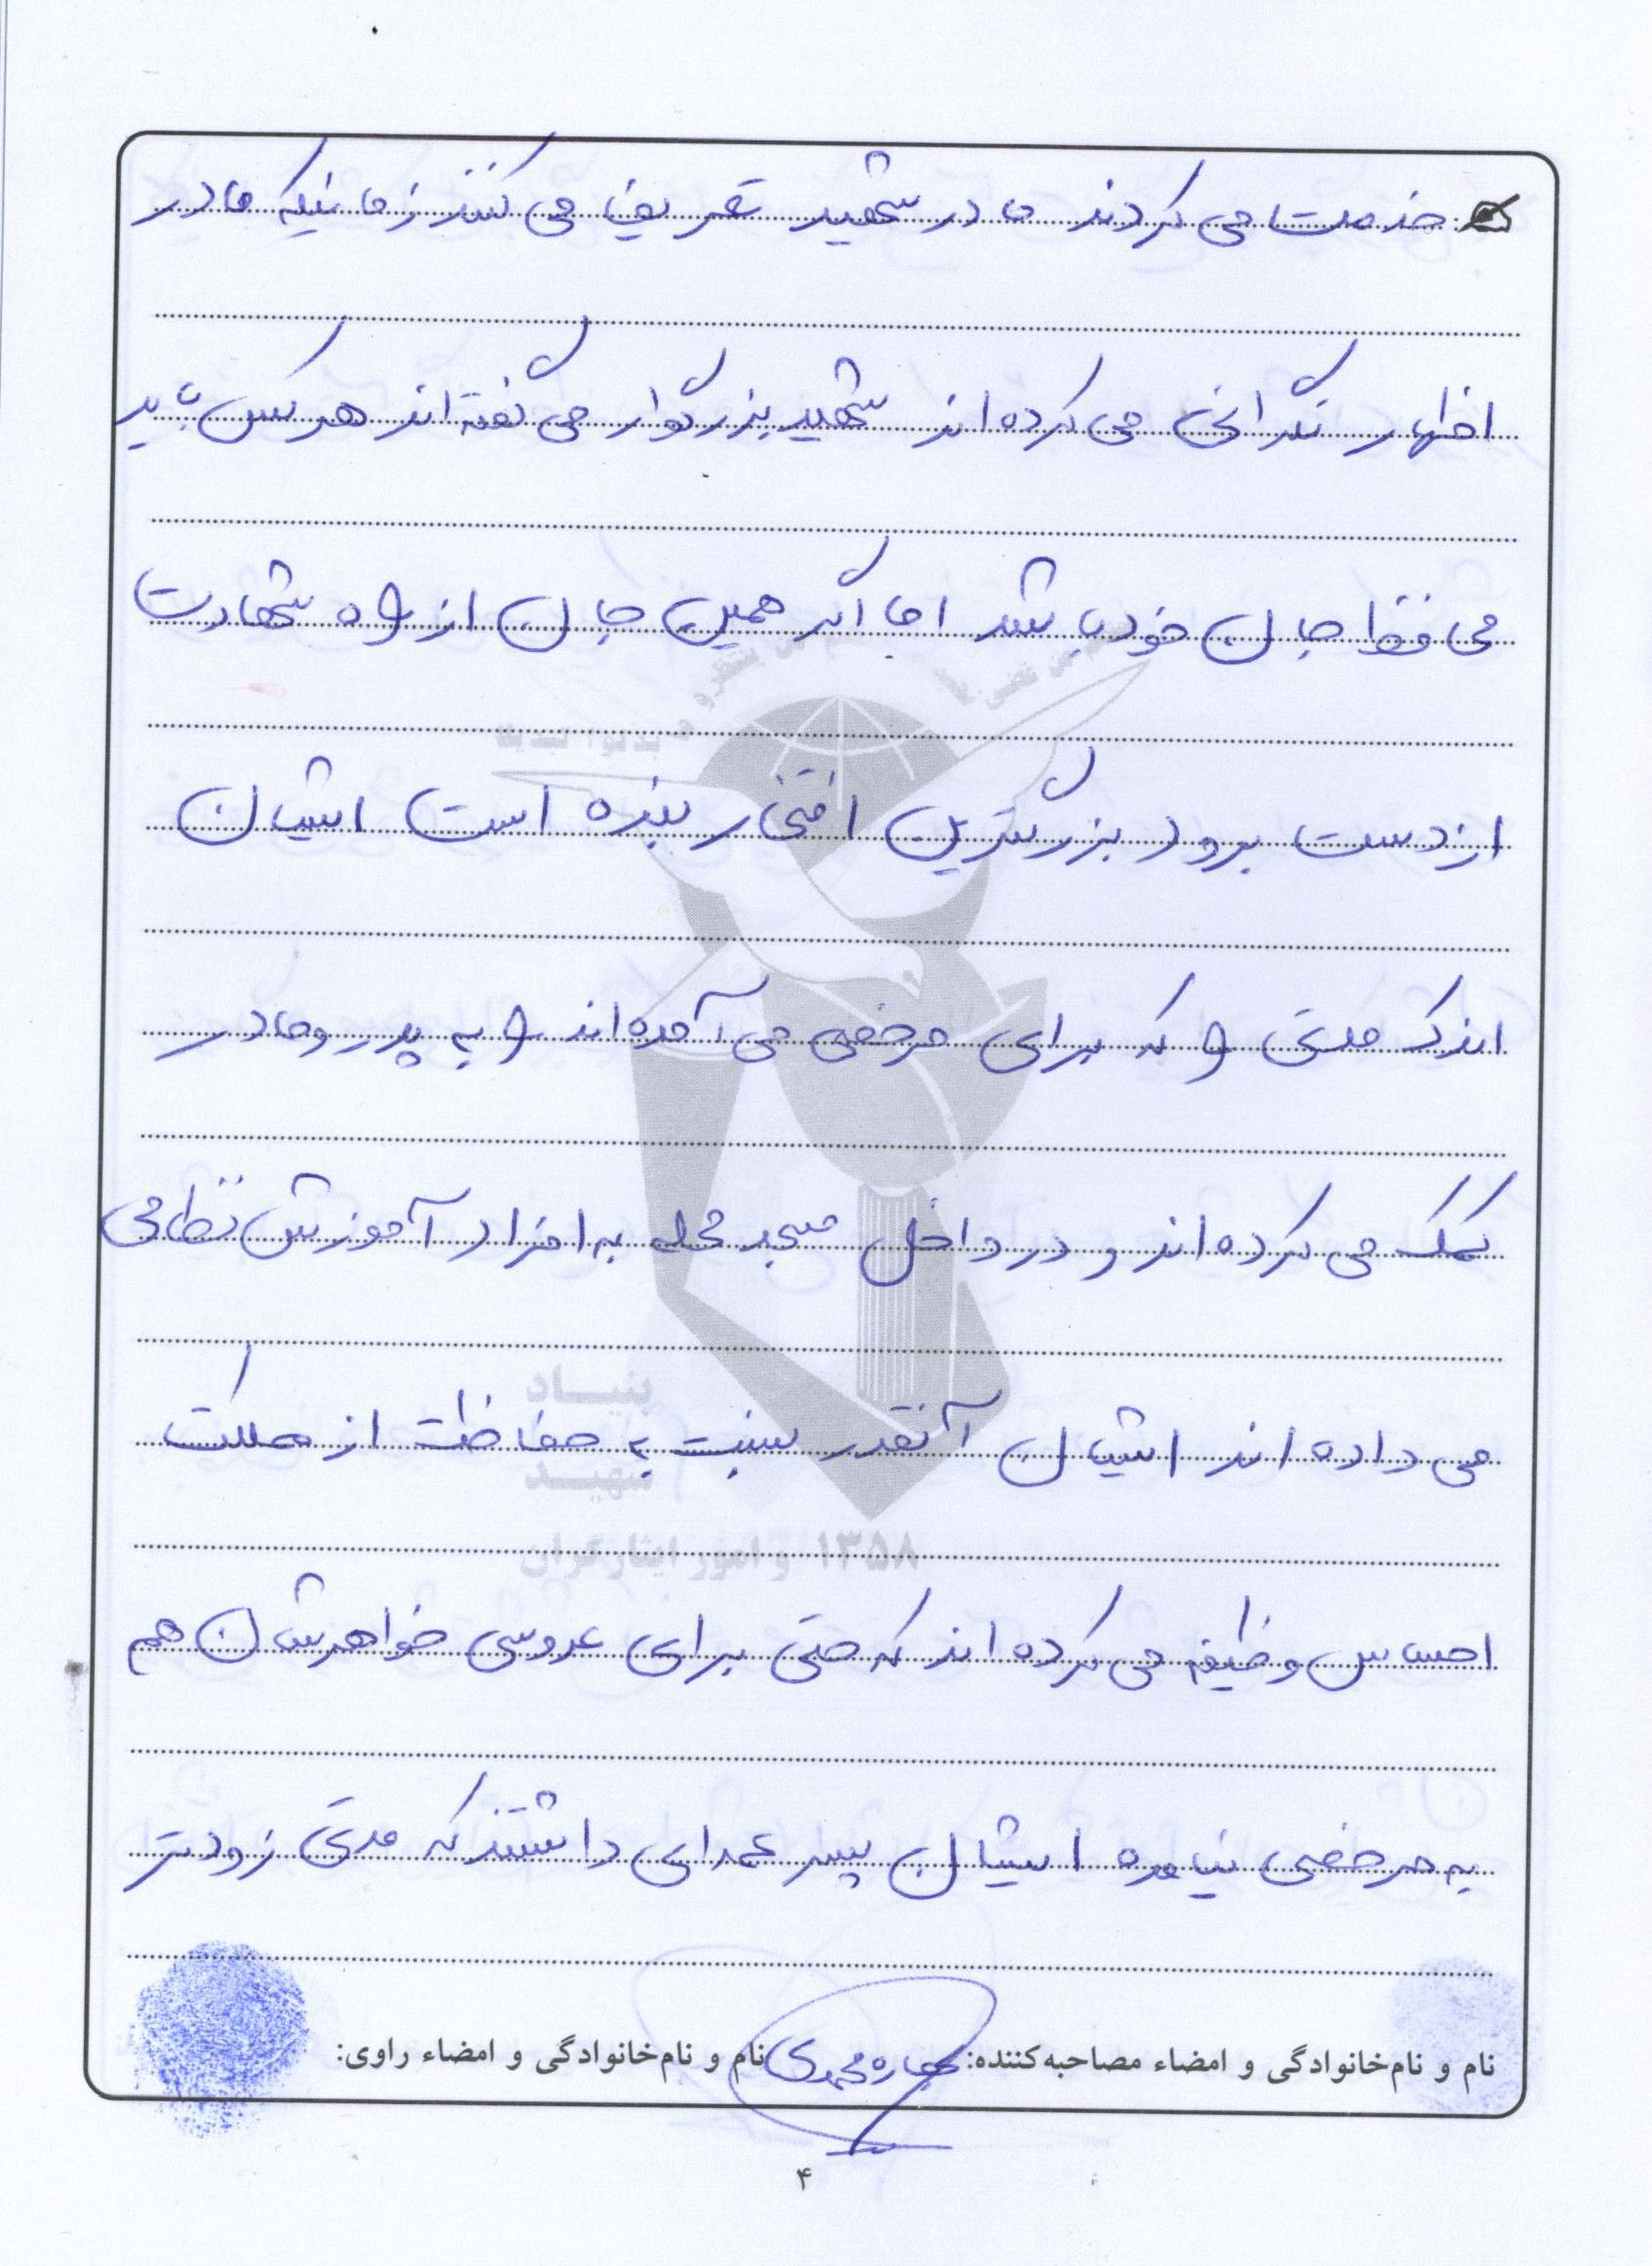 خدمت می کردند مادر شهید تعریف می کنند زمانیکه مادر
اظهار نگرانی می کرده اند شهید بزرگوار می گفته اند هرکس باید
محافظ جان خود باشد اما اگر همین جان از راه شهادت
از دست برود بزرگترین افتخار بنده است ایشان
اندک مدتی و که برای مرخصی می آمده اند و به پدر و مادر
کمک می کرده اند و در داخل مسجد محله به افراد آموزش نظامی
می داده اند ایشان آنقدر نسبت به حفاظت از مملکت
احساس وظیفه می کرده اند که حتی برای عروسی خواهرشان هم
به مرخصی نیامده ایشان پسر عمه ای داشتند که مدتی زودتر
بنیاد
شهید
و امور ایثارگران ۱۳۵۸
نام و نام‌خانوادگی و امضاء مصاحبه‌کننده: محمدی نام و نام‌خانوادگی و امضاء راوی:
۴